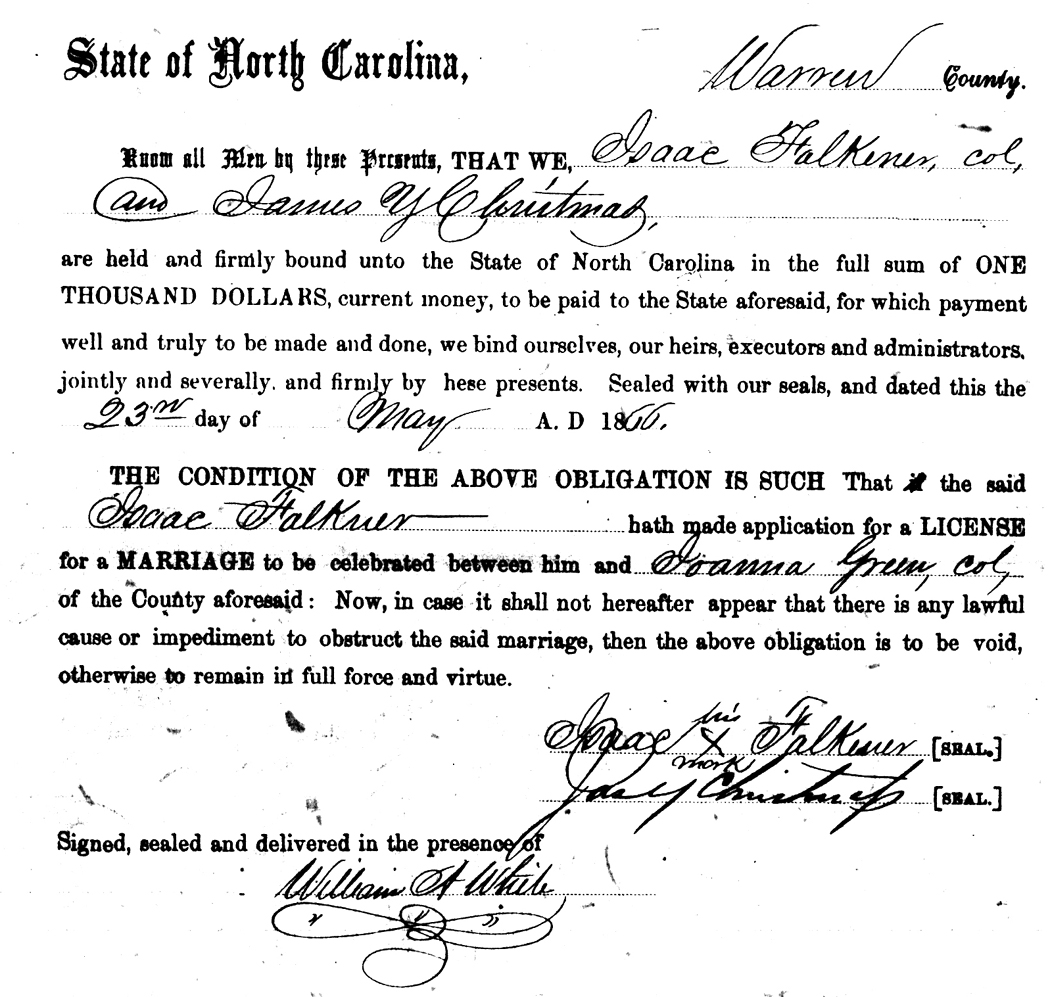 State of North Carolina, Warren County.
Know all Men by these Presents, THAT WE, Isaac Falkener, col,
and James Y Christmas,
are held and firmly bound unto the State of North Carolina in the full sum of ONE
THOUSAND DOLLARS, current money, to be paid to the State aforesaid, for which payment
well and truly to be made and done, we bind ourselves, our heirs, executors and administrators,
jointly and severally, and firmly by hese presents. Sealed with our seals, and dated this the
23rd day of May A. D 1866.
THE CONDITION OF THE ABOVE OBLIGATION IS SUCH That the said
Isaac Falkner hath made application for a LICENSE
for a MARRIAGE to be celebrated between him and Joanna Green, col,
of the County aforesaid: Now, in case it shall not hereafter appear that there is any lawful
cause or impediment to obstruct the said marriage, then the above obligation is to be void,
otherwise to remain in full force and virtue.
his
Isaac X Falkener [SEAL.]
mark
Jas Y Christmas [SEAL.]
Signed, sealed and delivered in the presence of
William A White